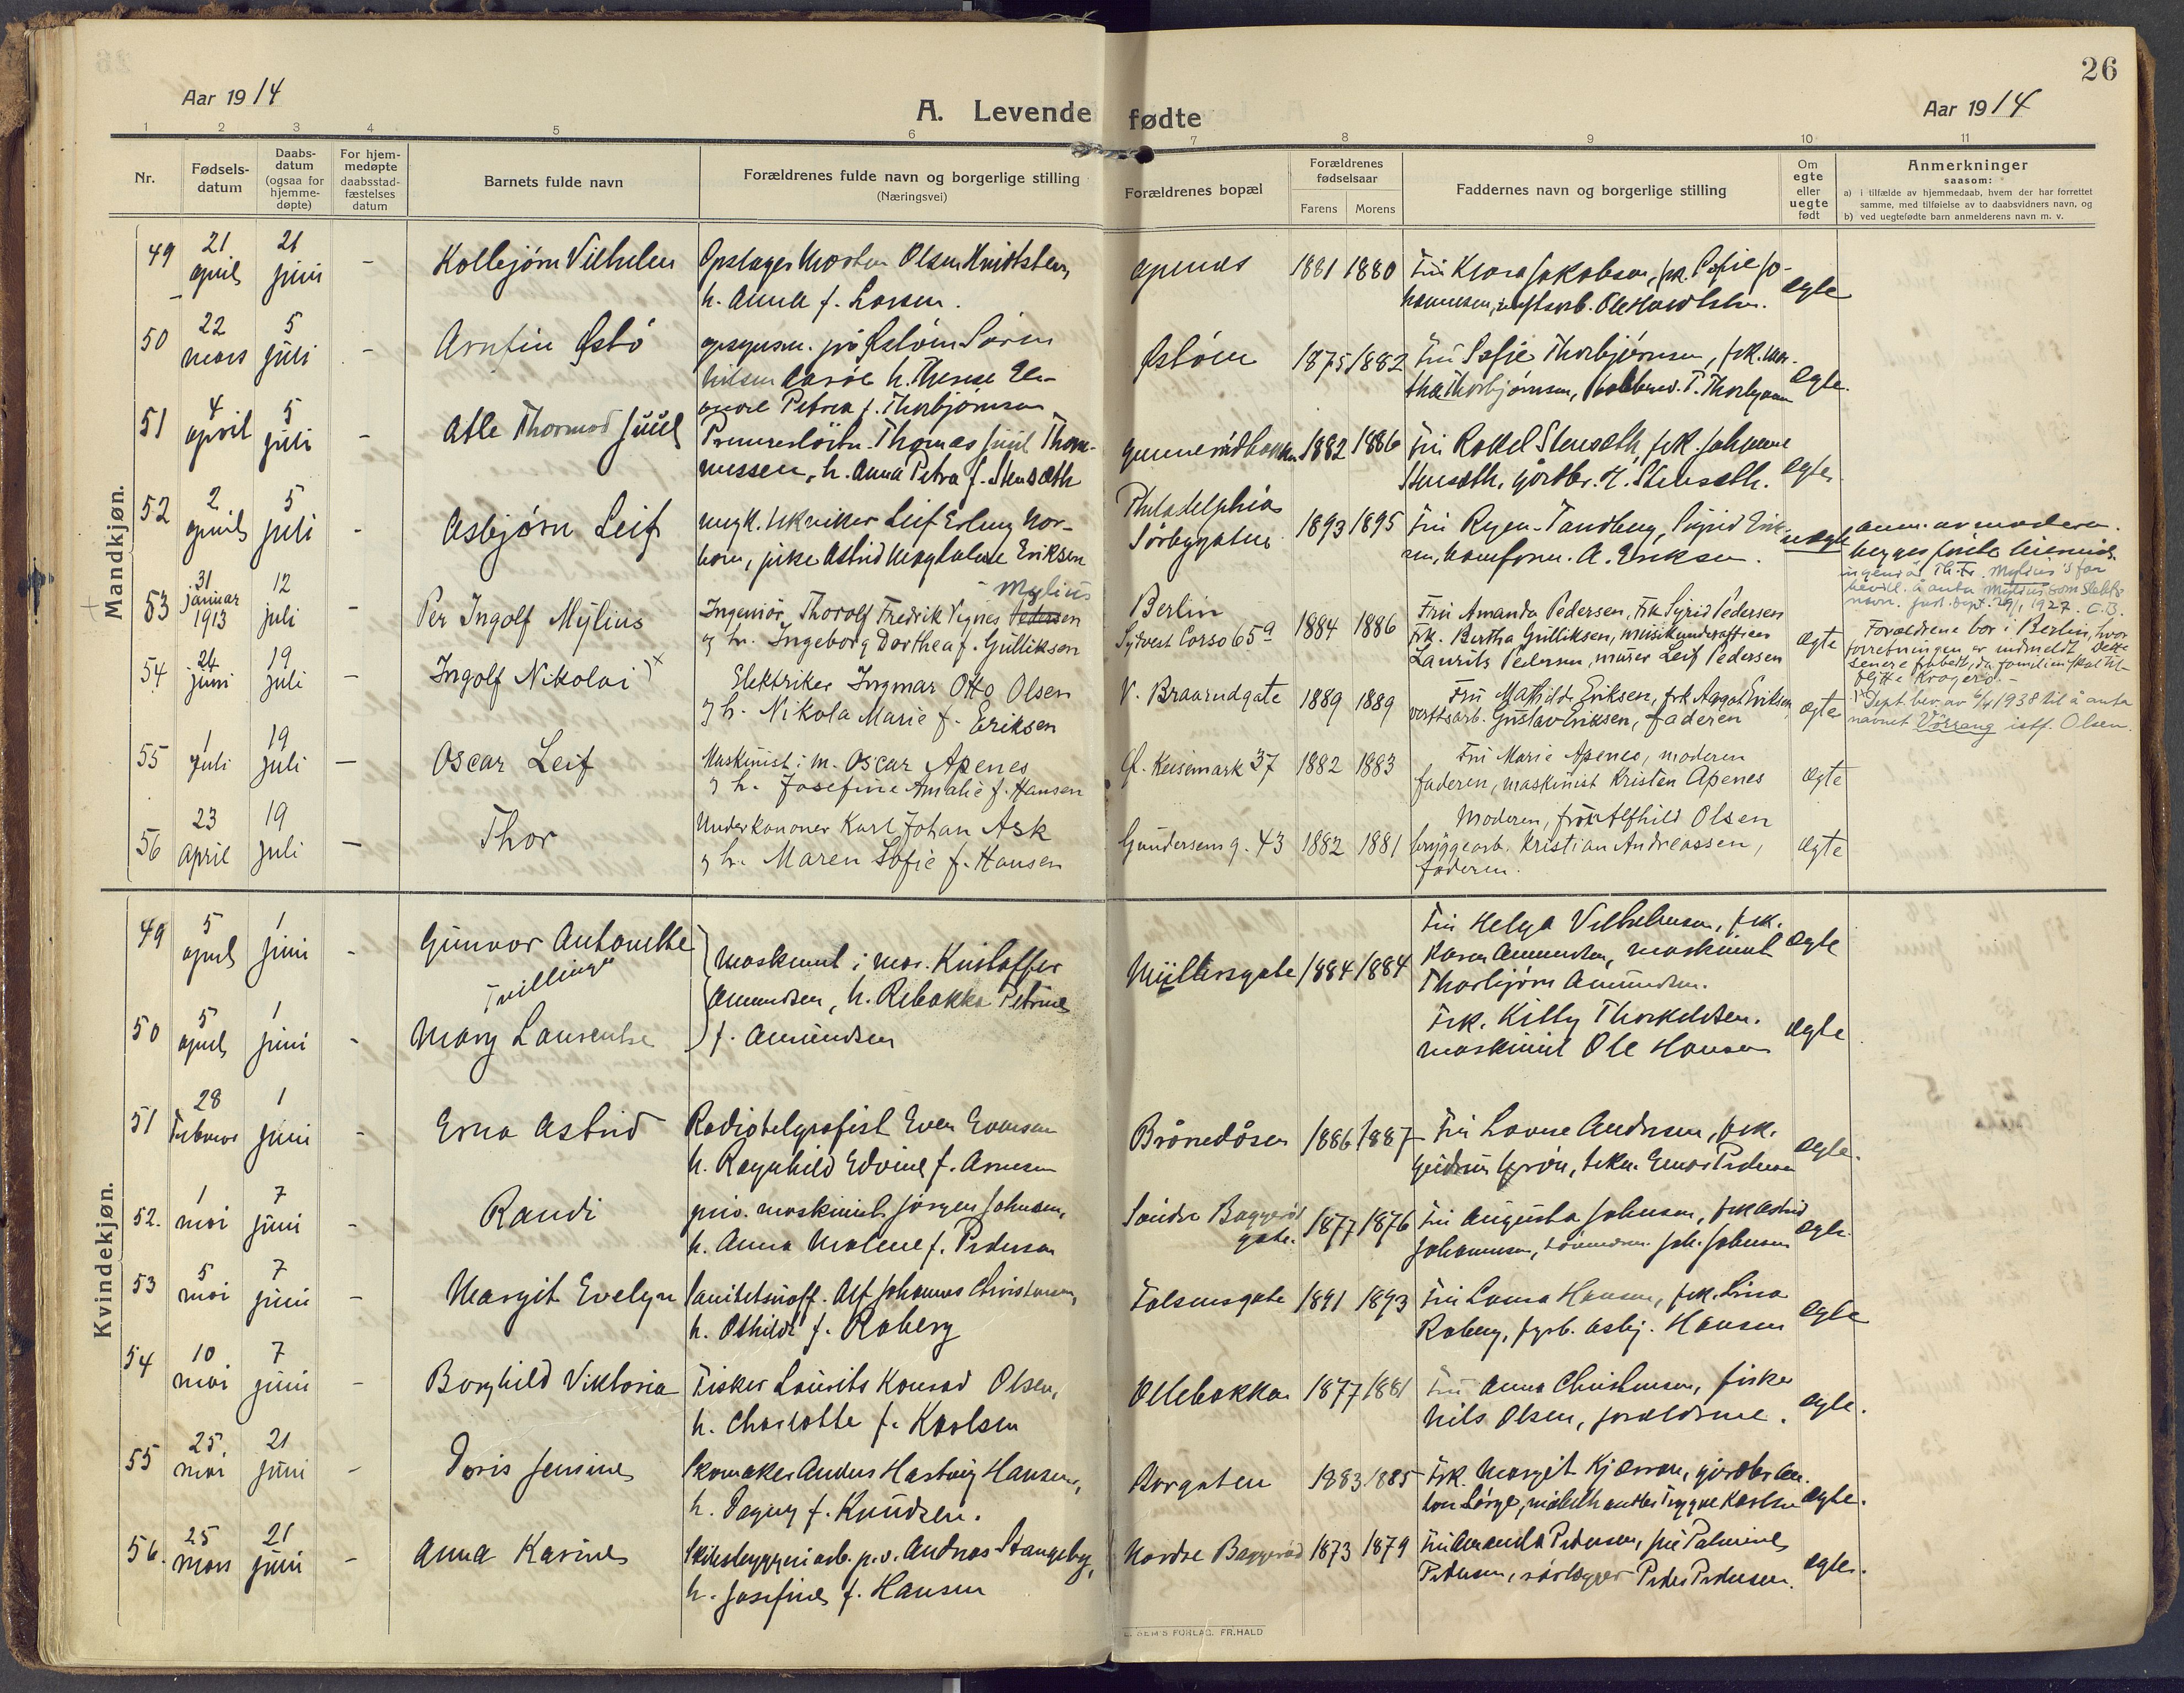 26
Aar 1914
A. Levende fødte
Aar 1914
1 2 3 4 5 6 7 8 9 10 11
Nr.
Fødsels-
datum
Daabs-
datum
(ogsaa for
hjemme-
døpte)
For hjem-
medøpte
daabsstad-
fæstelses
datum
Barnets fulde navn
Forældrenes fulde navn og borgerlige stilling
(Næringsvei)
Forældrenes bopæl
Forældrenes
fødselsaar
Farens Morens
Faddernes navn og borgerlige stilling
Om
egte
eller
uegte
født
Anmerkninger
saasom:
a) i tilfælde av hjemmedaab, hvem der har forrettet
samme, med tilføielse av to daabsvidners navn, og
b) ved uegtefødte barn anmelderens navn m. v.
Mandkjøn.
49 21 april 21 juni - Kolbjørn Vilhelm
Opslager Morten Olsen
h. Anna f. Larsen.
Apenes 1881 1880
Fru Klara Jakobsen, frk. Sofie Jo-
hannesen, verftsarb.
egte
50 22 mars 5 juli - Arnfin Østø
på Østøen Søren
Nilsen h. Therese Ele-
onore Petrea f. Thorbjørnsen
Østøen 1875 1882
Fru Sofie Thorbjørnsen, frk. Mar-
tha Thorbjørnsen, T. Thorbjørnsen
egte.
51 4 april 5 juli - Atle Thormod Juul
Premierløitn. Thomas Juul Thom-
messen, h. Anna Petra f. Stensæth
1882 1886
Fru Rakel Stensæth, frk. Johanne
Stensæth, gårdbr. H. Stensæth.
egte.
52 2 april 5 juli - Asbjørn Leif
ungk. tekniker Leif Erling Nor-
born, pike Astrid Magdalene Eriksen
Philadelphia
Sørbygaten 1893 1895
Fru Ryen-Tandberg, Sigrid Erik-
sen, A. Eriksen.
uegte
anm. av moderen.
begges første leiermål.
53 31 januar 1913 12 juli - Per Ingolf Mylius
Mylius
Ingeniør Thorolf Fredrik Vignes Pedersen
og h. Ingeborg Dorthea f. Gulliksen
Berlin
Sydvest Corso 65a 1884 1886
Fru Amanda Pedersen, Frk. Sigrid Pedersen
Frk. Bertha Gulliksen,
Laurits Pedersen, murer Leif Pedersen
egte
ingeniør Th. Fr. Mylius's far
bevill. å anta Mylius som slekts-
navn. Just. dept. 29/1 1927. C.B.
Forældrene bor i Berlin, hvor
forretningen er indmeldt. Dette
senere frabedt, da familien skal til-
flytte Kragerø.-
54 24 juni 19 juli - Ingolf Nikolai 1)x
Elektriker Ingmar Otto Olsen
og h. Nikola Marie f. Eriksen
V. Braarudgate 1889 1889
Fru Mathilde Eriksen, frk. Aagot Eriksen,
verftsarb. Gustav Eriksen, faderen
egte
1) Dept. bev. av 6/4 1938 til å anta
navnet Vörrang istf. Olsen.
55 1 juli 19 juli - Oscar Leif
Maskinist i m. Oscar Apenes
og h. Josefine Amalie f. Hansen
Ø. Keisemark 37 1882 1883
Fru Marie Apenes, moderen
faderen, maskinist Kristen Apenes
egte
56 23 april 19 juli - Thor
Underkanoner Karl Johan Ask
og h. Maren Sofie f. Hansen
Gundersens g. 43 1882 1881
Moderen, frk. Alfhild Olsen
bryggearb. Kristian Andreassen,
faderen.
egte
Kvindekjøn.
49 5 april 1 juni - Gunvor Antonette
Tvillinger
Maskinist i mar. Kristoffer
Amundsen, h. Rebekka Petrine
f. Amundsen
Müllersgate 1884 1884
Fru Helga Vilhelmsen, frk.
Karen Amundsen, maskinist
Thorbjørn Amundsen.
egte
50 5 april 1 juni - Mary Laurentse
Frk. Killy Thorkildsen.
maskinist Ole Hansen
egte
51 28 Februar 1 juni - Erna Astrid
Radiotelegrafist Even Evensen
h. Ragnhild Edvine f. Arnesen
Brårudåsen 1886 1887
Fru Lovise Andersen, frk.
Gudrun Grøn, tekn. Einar Pedersen
egte.
52. 1 mai 7 juni - Randi
priv. maskinist Jørgen Johnsen,
h. Anna Malene f. Pedersen
Søndre Baggerød
gate. 1877 1876
Fru Augusta Johnsen, frk Astrid
Johannesen, Joh. Johnsen
egte.
53 5 mai 7 juni - Margit Evelyn
Sanitetsuoff. Alf Johannes Christensen,
h. Othilde f. Roberg
Falsensgate 1891 1893
Fru Laura Hansen, frk. Lina
Roberg, fyrb. Asbj. Hansen
egte
54 10 mai 7 juni - Borghild Viktoria
Fisker Laurits Konrad Olsen,
h. Charlotte f. Karlsen
Ollebakken 1877 1881
Fru Anna Christensen, fisker
Nils Olsen, forældrene.
egte.
55 25. mai 21 juni - Doris Jensine
Skomaker Anders Hartvig Hansen,
h. Dagny f. Knudsen.
Borgaten 1883 1885
Frk. Margit Kjærran, gårdbr. An-
ton Sørge, Trygve Karlsen
egte.
56. 25 mars 21 juni - Anna Karine
Skibsbyggeriarb. p.v. Andreas Stangeby,
h. Josefine f. Hansen
Nordre Baggerød 1873 1879
Fru Amanda Pedersen, frk Palmine
Pedersen, rørlægger Peder Pedersen.
egte.
E. SEM'S FORLAG, FR.HALD